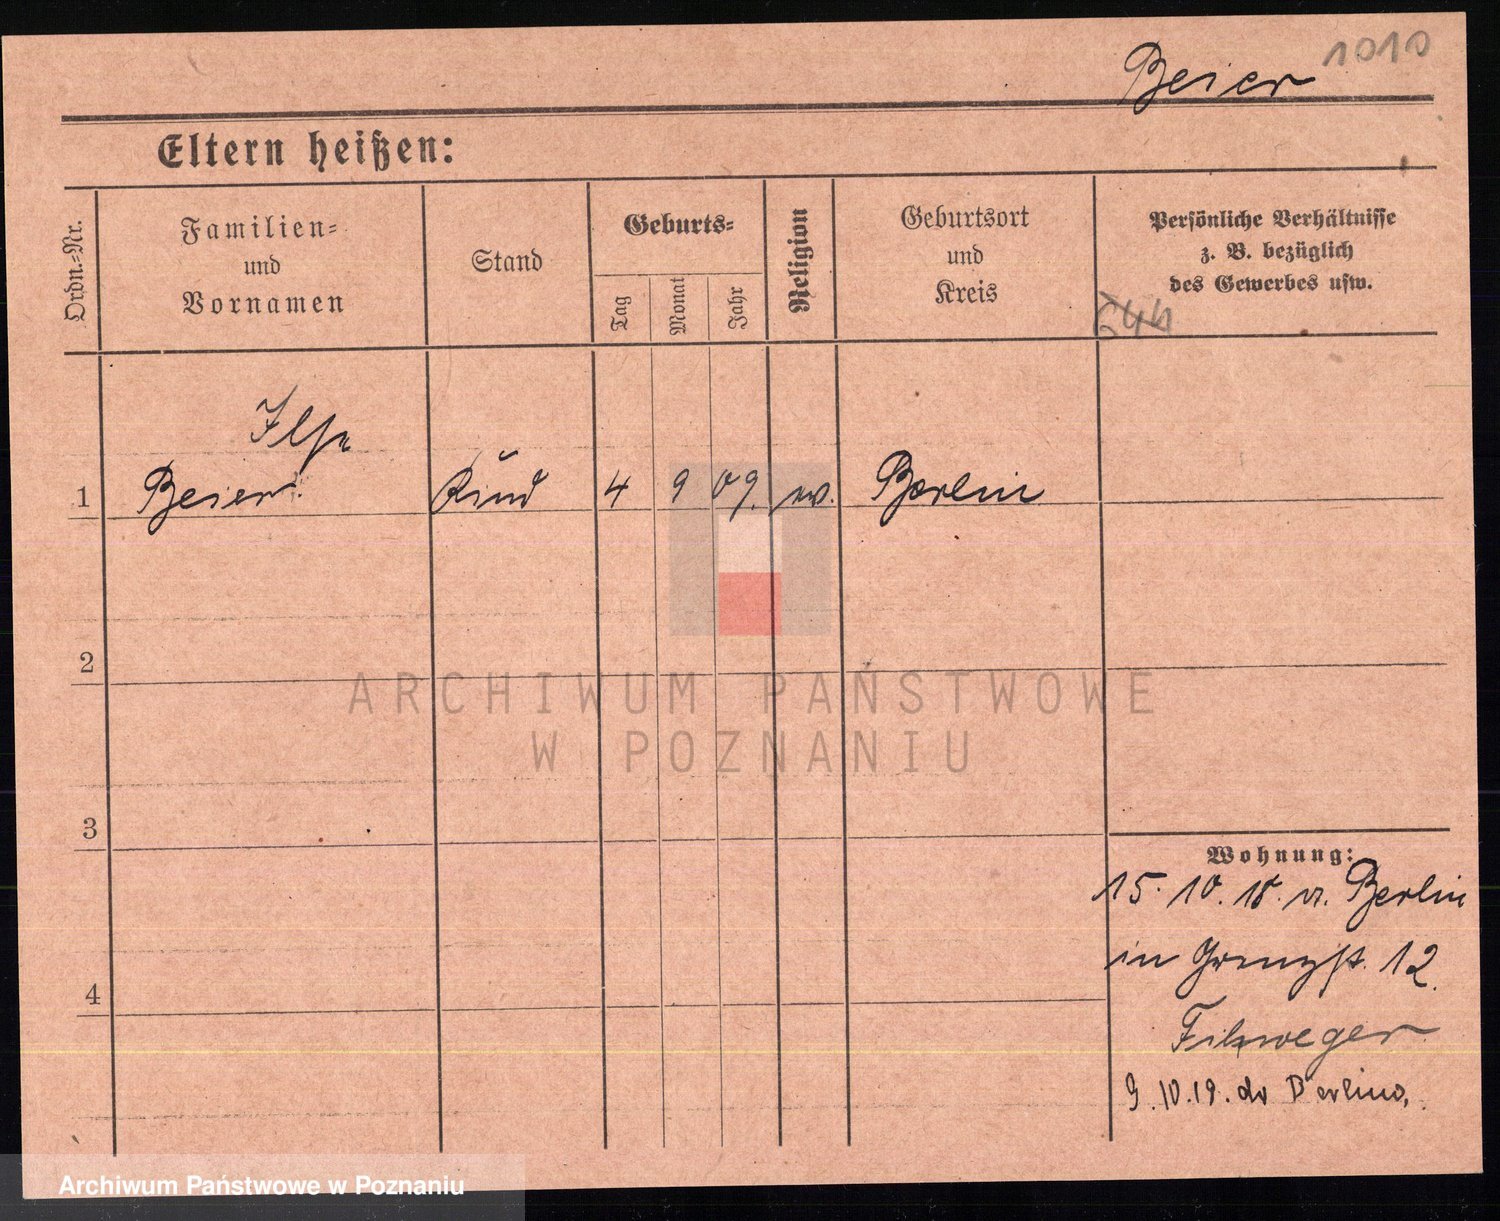 1010
Beier
Eltern heißen:
Ordn.=Nr.
Familien=
und
Vornamen
Stand
Geburts=
Tag
Monat
Jahr
Religion
Geburtsort
und
Kreis
Persönliche Verhältnisse
z. B. bezüglich
des Gewerbes usw.
Ilse
1 Beier Kind 4 9 09. ev. Berlin
2
3
4
Wohnung:
15. 10. 18. v. Berlin
in Grenzst. 12.
Filzweger
9.10.19. do Berlina.
ARCHIWUM PAŃSTWOWE
W POZNANIU
Archiwum Państwowe w Poznaniu